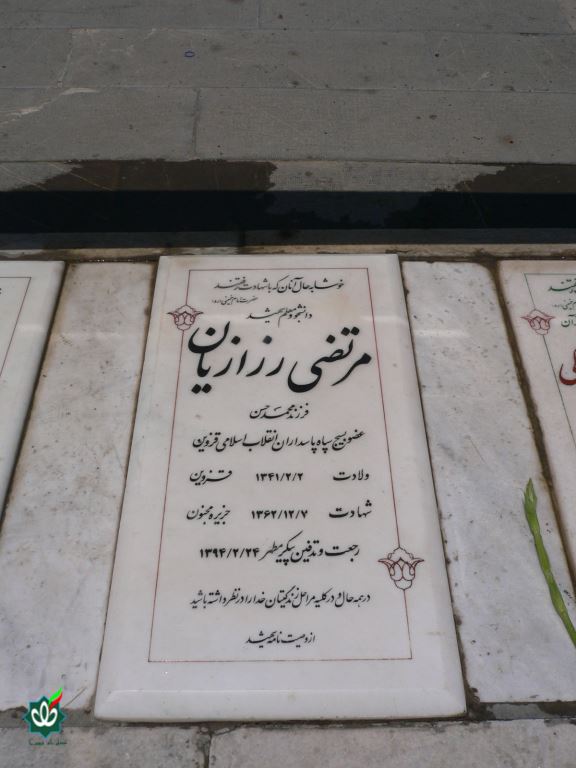 خوشا به حال آنان که با شهادت رفتند
حضرت امام خمینی (ره)
دانشجو معلم شهید
مرتضی رزازیان
فرزند محمد حسن
عضو بسیج سپاه پاسداران انقلاب اسلامی قزوین
ولادت ۱۳۴۱/۲/۲ قزوین
شهادت ۱۳۶۲/۱۲/۷ جزیره مجنون
رجعت و تدفین پیکر مطهر ۱۳۹۴/۲/۲۴
در همه حال و در کلیه مراحل زندگیتان خدا را در نظر داشته باشید
از وصیت نامه شهید